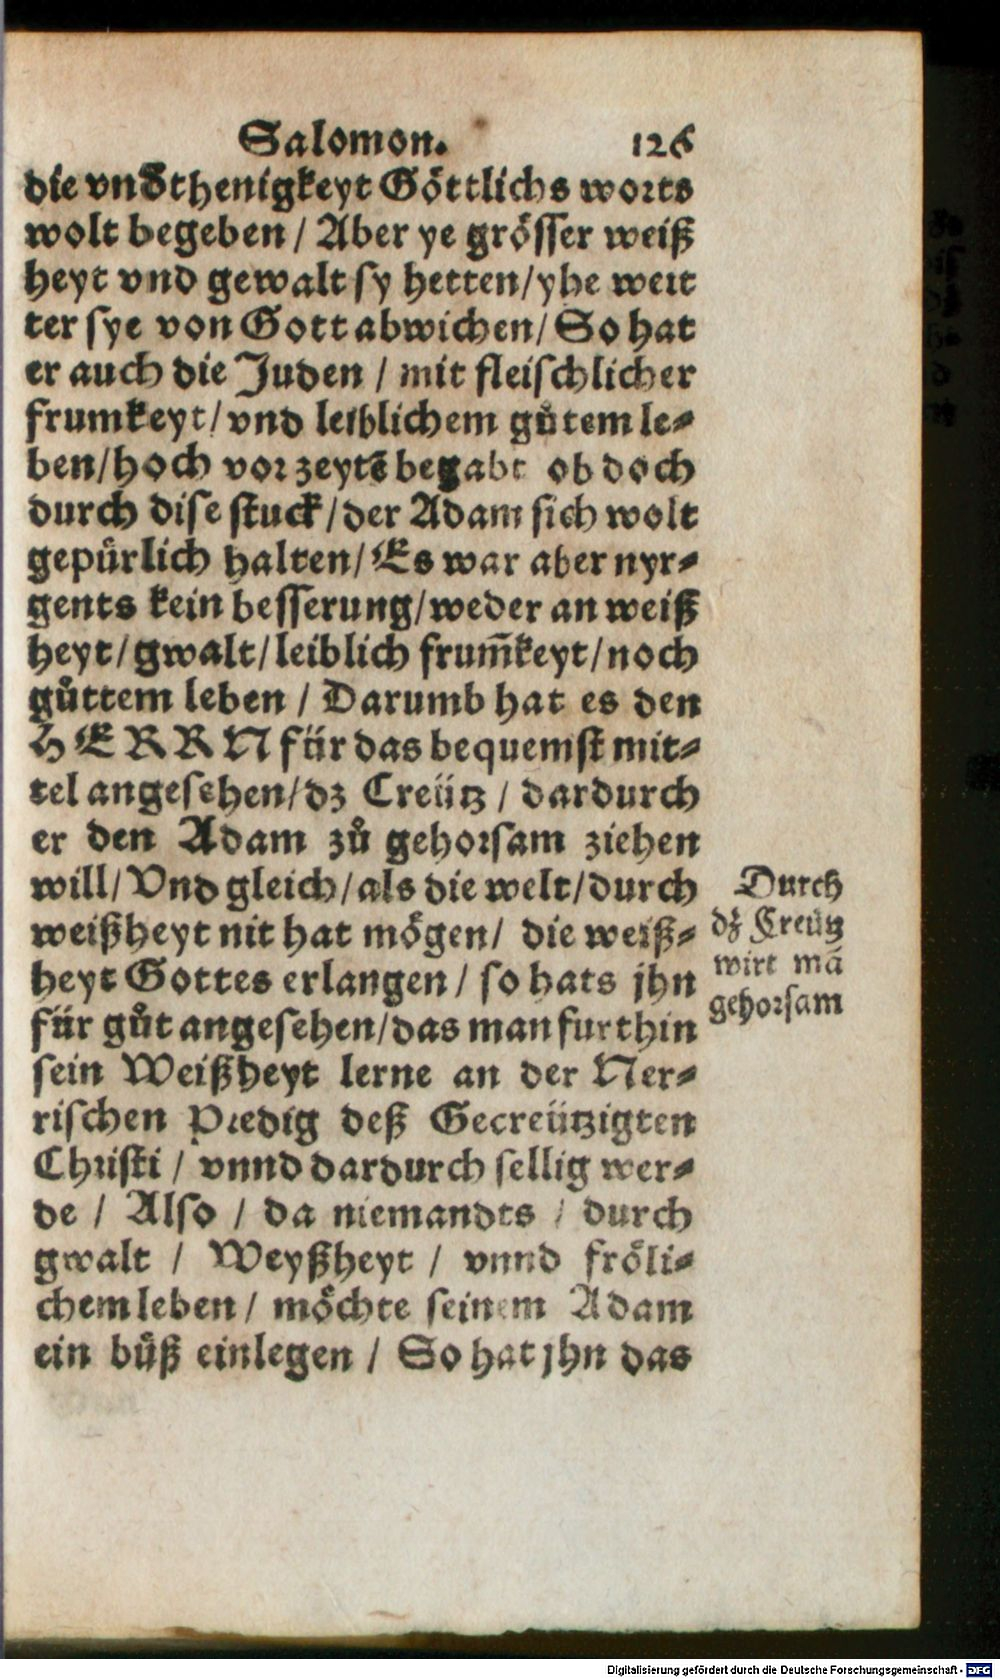 Salomon. 126
die vnďthenigkeyt Göttlichs worts
wolt begeben / Aber ye grösser weiß
heyt vnd gewalt sy hetten/yhe weit
ter sye von Gott abwichen/ So hat
er auch die Juden / mit fleischlicher
frumkeyt/ vnd leiblichem gůtem le⸗
ben/hoch vor zeytẽ begabt ob doch
durch dise stuck/der Adam sich wolt
gepürlich halten/ Es war aber nyr⸗
gents kein besserung/weder an weiß
heyt/gwalt/leiblich frum̃keyt/noch
gůttem leben / Darumb hat es den
HERRN für das bequemst mit⸗
tel angesehen/dz Creütz / dardurch
er den Adam zů gehorsam ziehen
will/ Vnd gleich/als die welt/durch
weißheyt nit hat mögen/ die weiß⸗
heyt Gottes erlangen / so hats jhn
für gůt angesehen/das man furthin
sein Weißheyt lerne an der Ner⸗
rischen Predig deß Gecreützigten
Christi / vnnd dardurch sellig wer⸗
de / Also / da niemandts / durch
gwalt / Weyßheyt / vnnd fröli⸗
chem leben / möchte seinem Adam
ein büß einlegen / So hat jhn das
Durch
dz Creütz
wirt mā
gehorsam
Digitalisierung gefördert durch die Deutsche Forschungsgemeinschaft - DFG